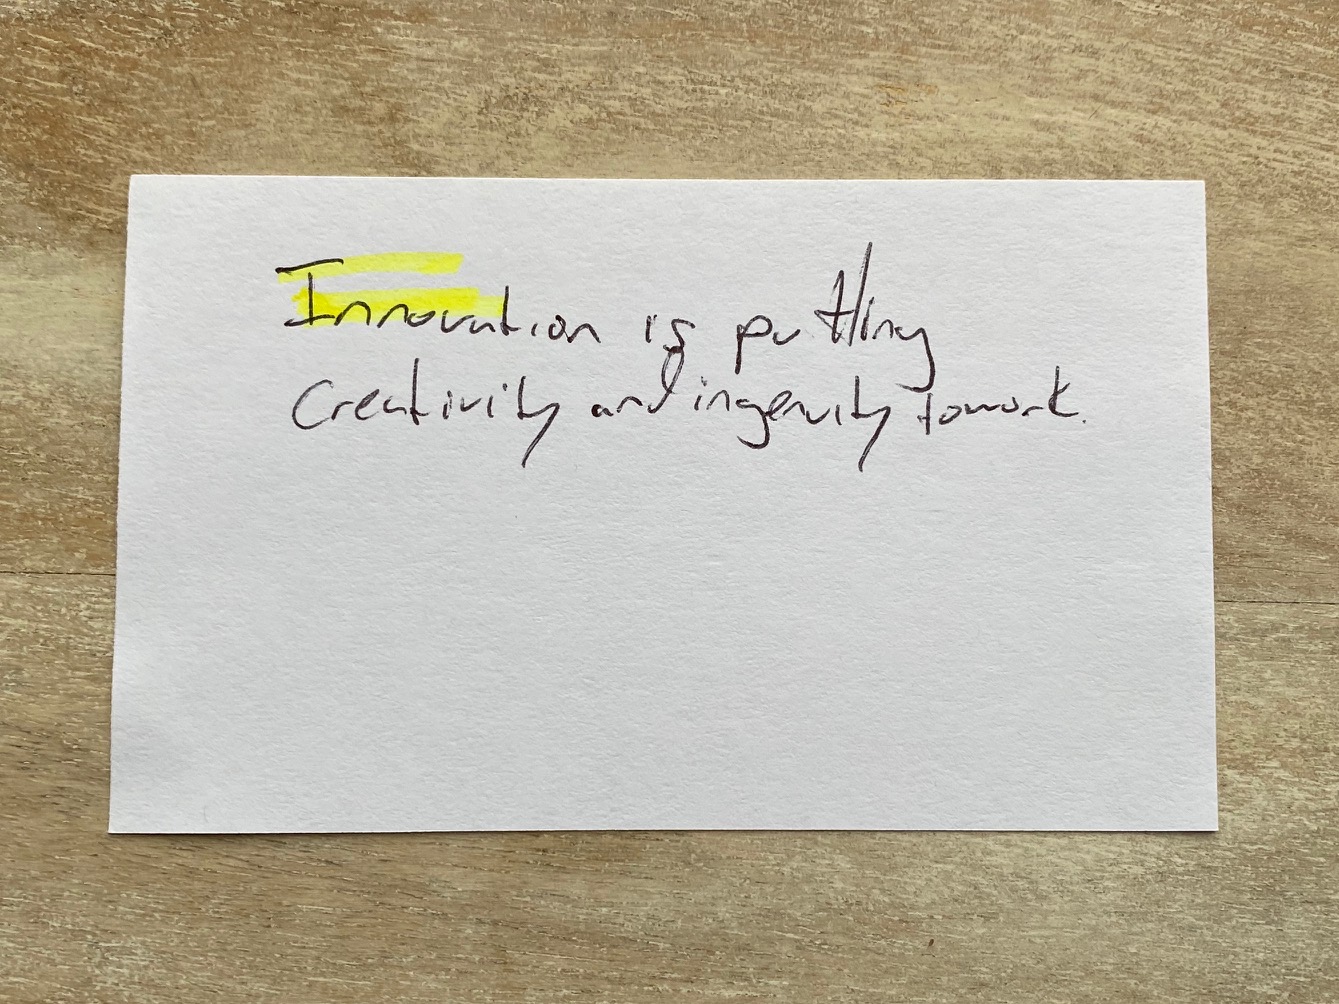 Innovation is putting
Creativity and ingenuity to work.